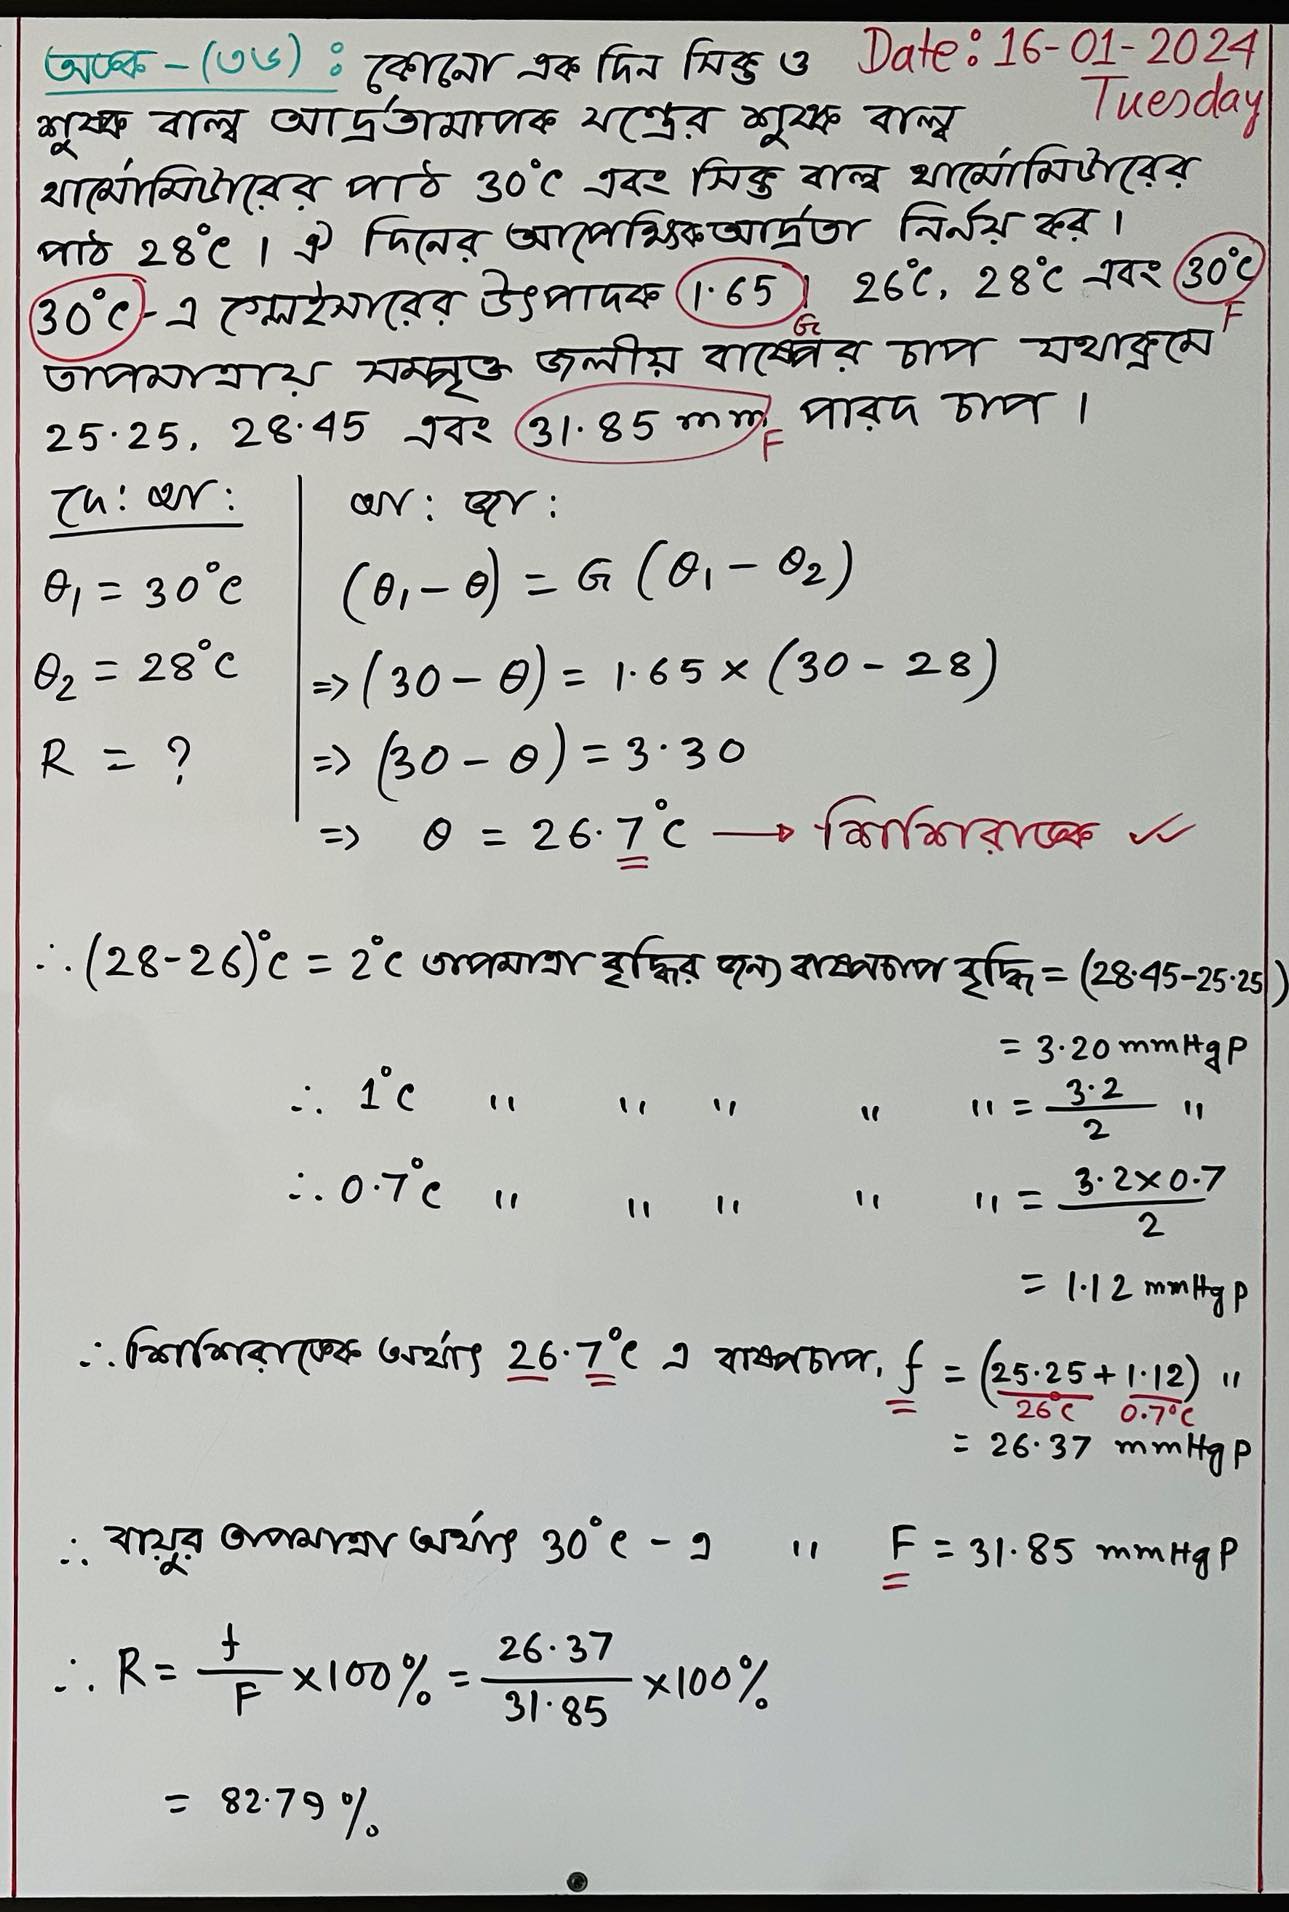 অংক - (৩৬) : কোনো এক দিন সিক্ত ও
Date: 16-01-2024
Tuesday
শুষ্ক বাল্ব আর্দ্রতামাপক যন্ত্রের শুষ্ক বাল্ব
থার্মোমিটারের পাঠ 30°C এবং সিক্ত বাল্ব থার্মোমিটারের
পাঠ 28°C । ঐ দিনের আপেক্ষিক আর্দ্রতা নির্নয় কর।
30°C - এ গ্লেইসারের উৎপাদক 1.65। 26°C, 28°C এবং 30°C
G F
তাপমাত্রায় সম্পৃক্ত জলীয় বাষ্পের চাপ যথাক্রমে
25.25, 28.45 এবং 31.85 mm পারদ চাপ ।
F
দে: আ: আ: জা:
θ₁ = 30°C (θ₁ - θ) = G (θ₁ - θ₂)
θ₂ = 28°C => (30 - θ) = 1.65 × (30 - 28)
R = ? => (30 - θ) = 3.30
=> θ = 26.7°C → শিশিরাংক ✓✓
∴ (28-26)°C = 2°C তাপমাত্রা বৃদ্ধির জন্য বাষ্পচাপ বৃদ্ধি = (28.45-25.25)
= 3.20 mmHgP
∴ 1°C " " " " " = 3.2/2 "
∴ 0.7°C " " " " " = 3.2×0.7/2
= 1.12 mmHgP
∴ শিশিরাংক অর্থাৎ 26.7°C এ বাষ্পচাপ, f = (25.25 + 1.12) "
26°C 0.7°C
= 26.37 mmHgP
∴ বায়ুর তাপমাত্রা অর্থাৎ 30°C - এ " F = 31.85 mmHgP
∴ R = f/F ×100% = 26.37/31.85 ×100%
= 82.79%